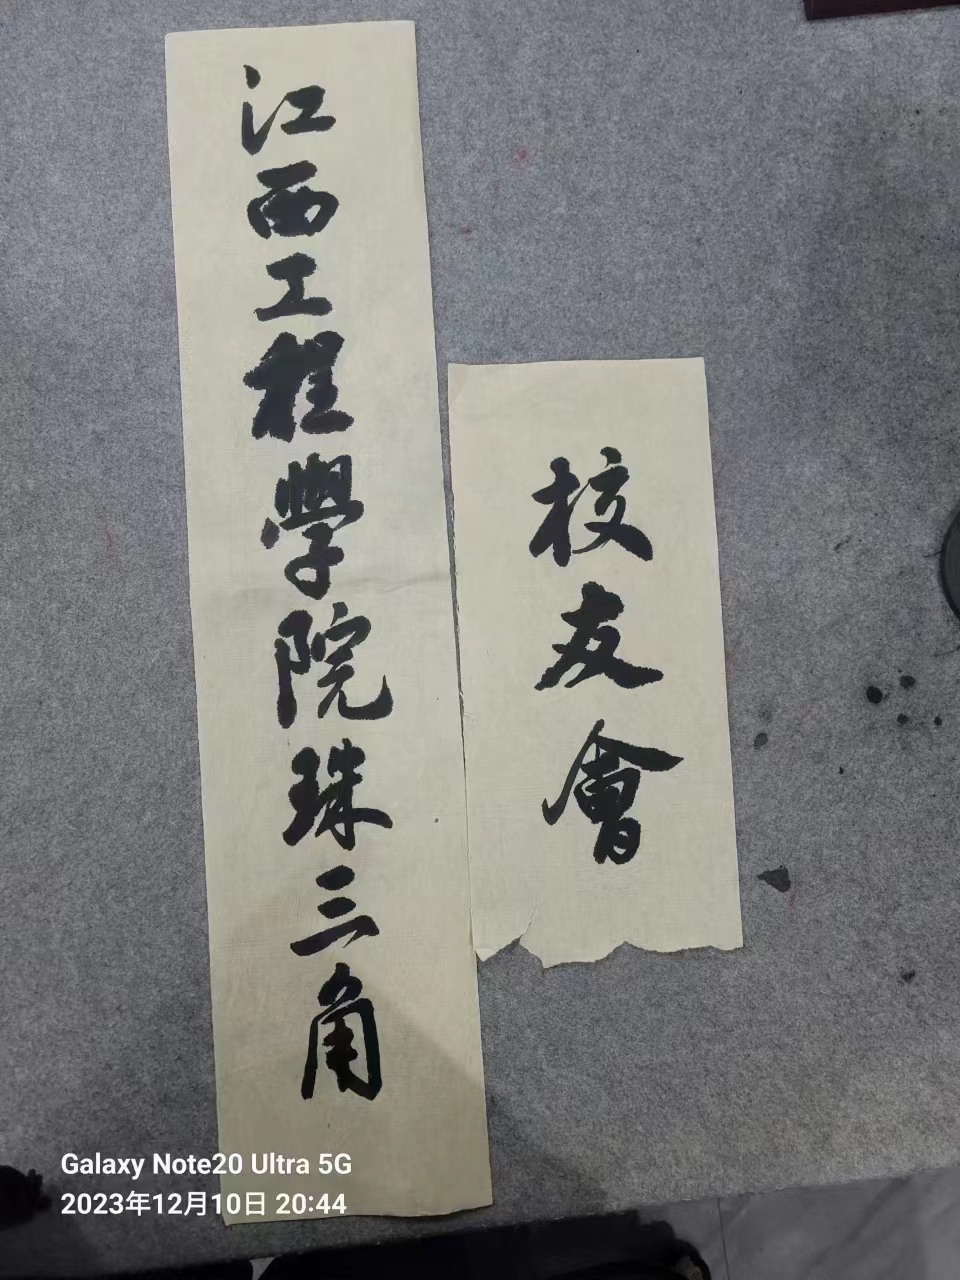 江西工程學院珠三角
校友會
Galaxy Note20 Ultra 5G
2023年12月10日 20:44